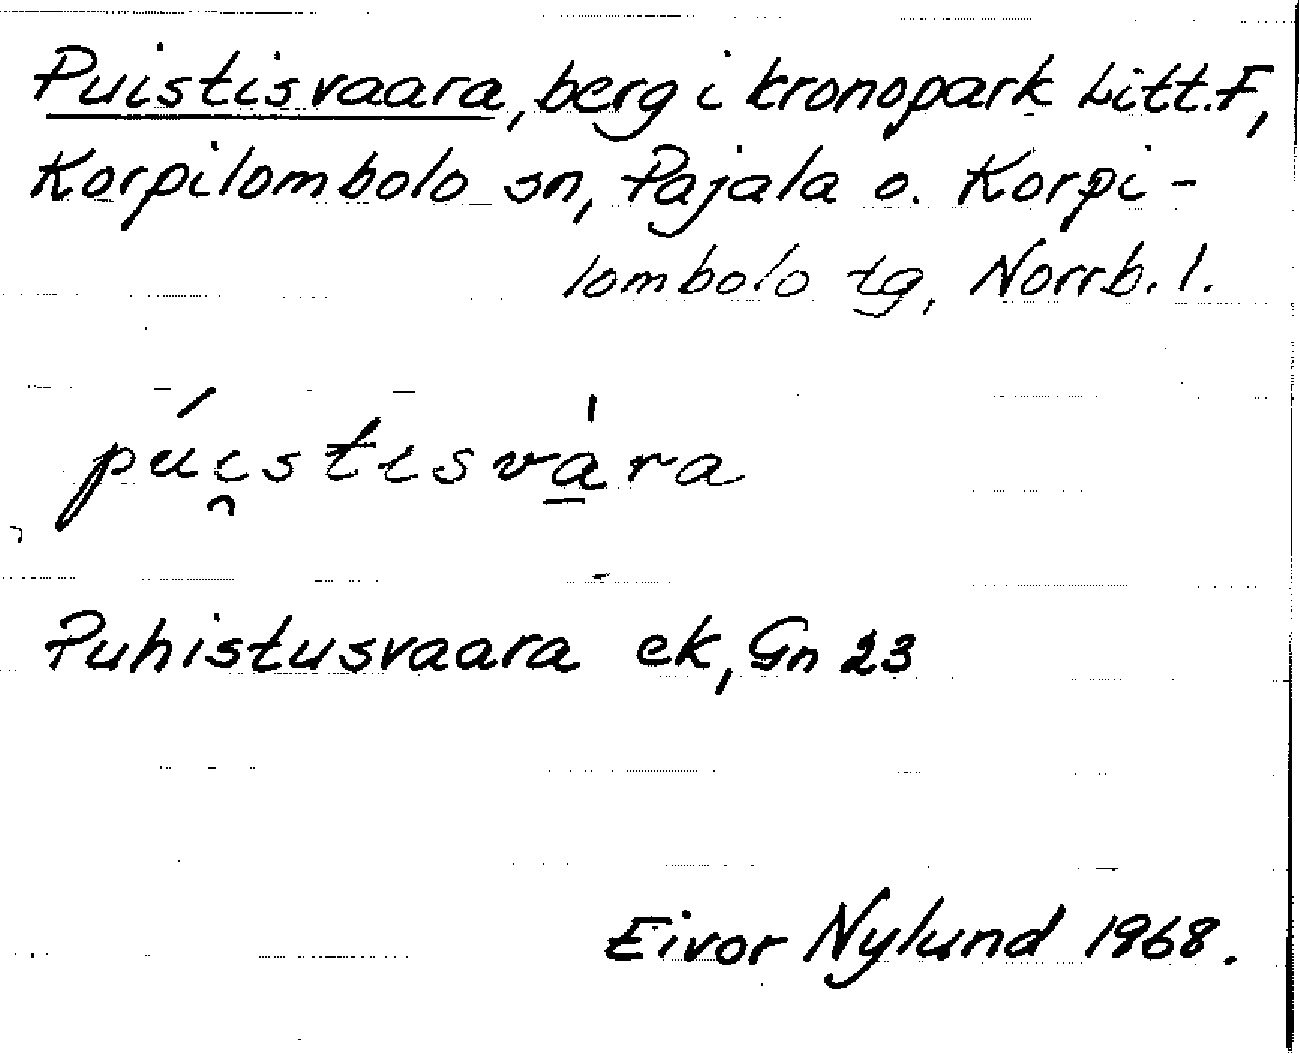 Puistisvaara, berg i kronopark Litt. F,
Korpilombolo sn, Pajala o. Korpi-
lombolo tg, Norrb. l.
púi̯stisvà̱ra
Puhistusvaara ek, Gn 23
Eivor Nylund 1968.